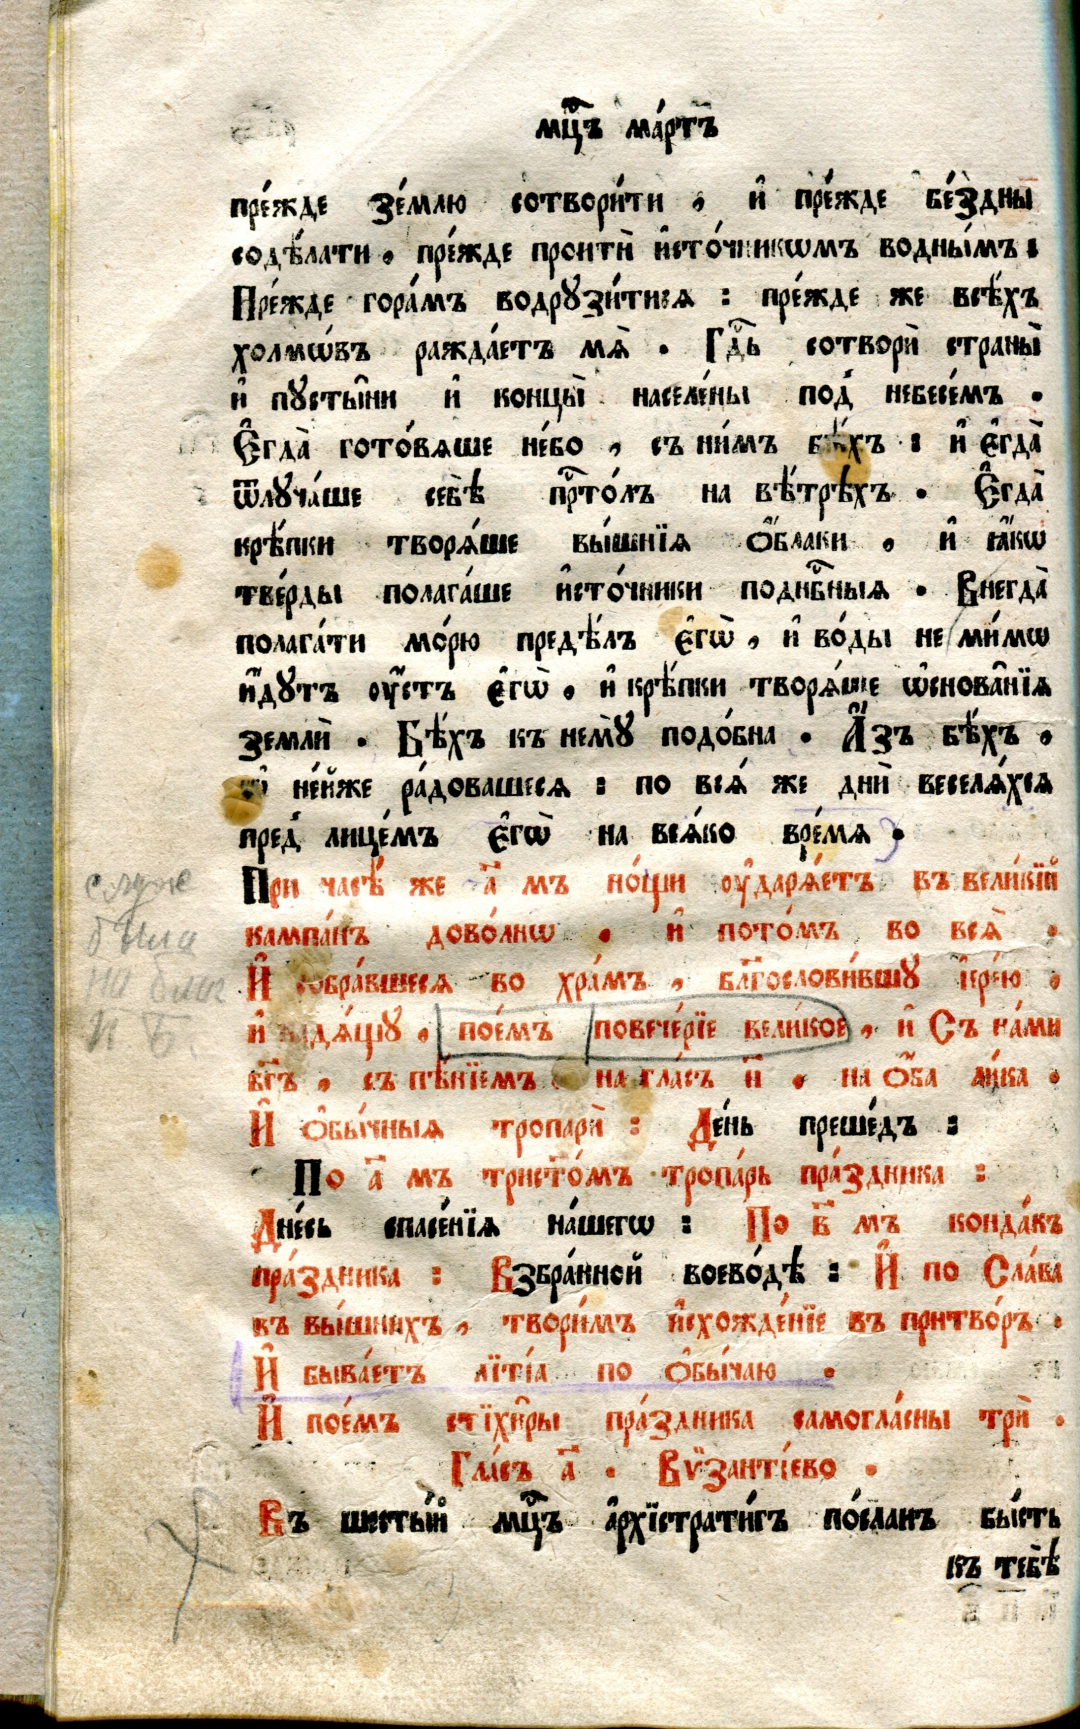 мц҃ъ ма́ртъ
пре́жде зе́млю сотвори́ти , и҆ пре́жде бе́здны
содѣ́лати . пре́жде проити̑ и҆сто́чникѡмъ водны́мъ :
Пре́жде гора́мъ водрꙋзи́тися : пре́жде же всѣ́хъ
холмѡ́въ ражда́етъ мѧ̀ . Гдⷭ҇ь сотвори̑ страны̑
и҆ пꙋсты̑ни и҆ концы̑ населе́ны под̾ небесе́мъ .
Є҆гда̀ гото́вѧше не́бо , съ ни́мъ бѣ́хъ : и҆ є҆гда̀
ѿлꙋча́ше себѣ̀ прⷭ҇то́лъ на вѣ́трѣхъ . Є҆гда̀
крѣ́пки творѧ́ше вы́шнїѧ ѻ҆́блаки , и҆ ꙗ҆́кѡ
тве́рды полага́ше и҆сто́чники поднбⷭ҇ныѧ . Внегда̀
полага́ти мо́рю предѣ́лъ є҆гѡ̀ , и҆ во́ды не ми́мѡ
и҆́дꙋтъ ᲂу҆́стъ є҆гѡ̀ . и҆ крѣ́пки творѧ́ше ѡ҆снова̑нїѧ
земли̑ . Бѣ́хъ къ немꙋ̀ подо́бна . А҆́зъ бѣ́хъ ,
ѡ҆ не́йже ра́довашесѧ : по всѧ́ же дни̑ веселѧ́хсѧ
пред̾ лице́мъ є҆гѡ̀ на всѧ́ко вре́мѧ .
При часѣ̀ же а҃ мъ но́щи ᲂу҆дарѧ́етъ въ вели́кїй
кампа́нъ дово́лнѡ . и҆ пото́мъ во всѧ̑ .
И҆ собра́вшесѧ во хра́мъ , блг҃ослови́вшꙋ і҆ере́ю .
и҆ кадѧ́щꙋ , пое́мъ повече́рїе вели́кое , и҆ Съ на́ми
бг҃ъ , съ пѣ́нїемъ . на гла́съ и҃ . на ѻ҆́ба ли́ка .
И҆ ѻ҆бы́чныѧ тропари̑ : Де́нь преше́дъ :
По а҃ мъ трист҃о́мъ тропа́рь пра́здника :
Дне́сь спасе́нїѧ на́шегѡ : По в҃ мъ конда́къ
пра́здника : Взбра́нной воево́дѣ : И҆ по Сла́ва
въ вы́шнихъ , твори́мъ и҆схожде́нїе въ притво́ръ .
И҆ быва́етъ лїті́а по ѻ҆бы́чаю .
И҆ пое́мъ стїхи̑ры пра́здника самогла́сны три̑ .
Гла́съ а҃ . Вѷзанті́ево .
Въ шесты́й мц҃ъ а҆рхїстрати́гъ по́сланъ бы́сть
къ тебѣ̀